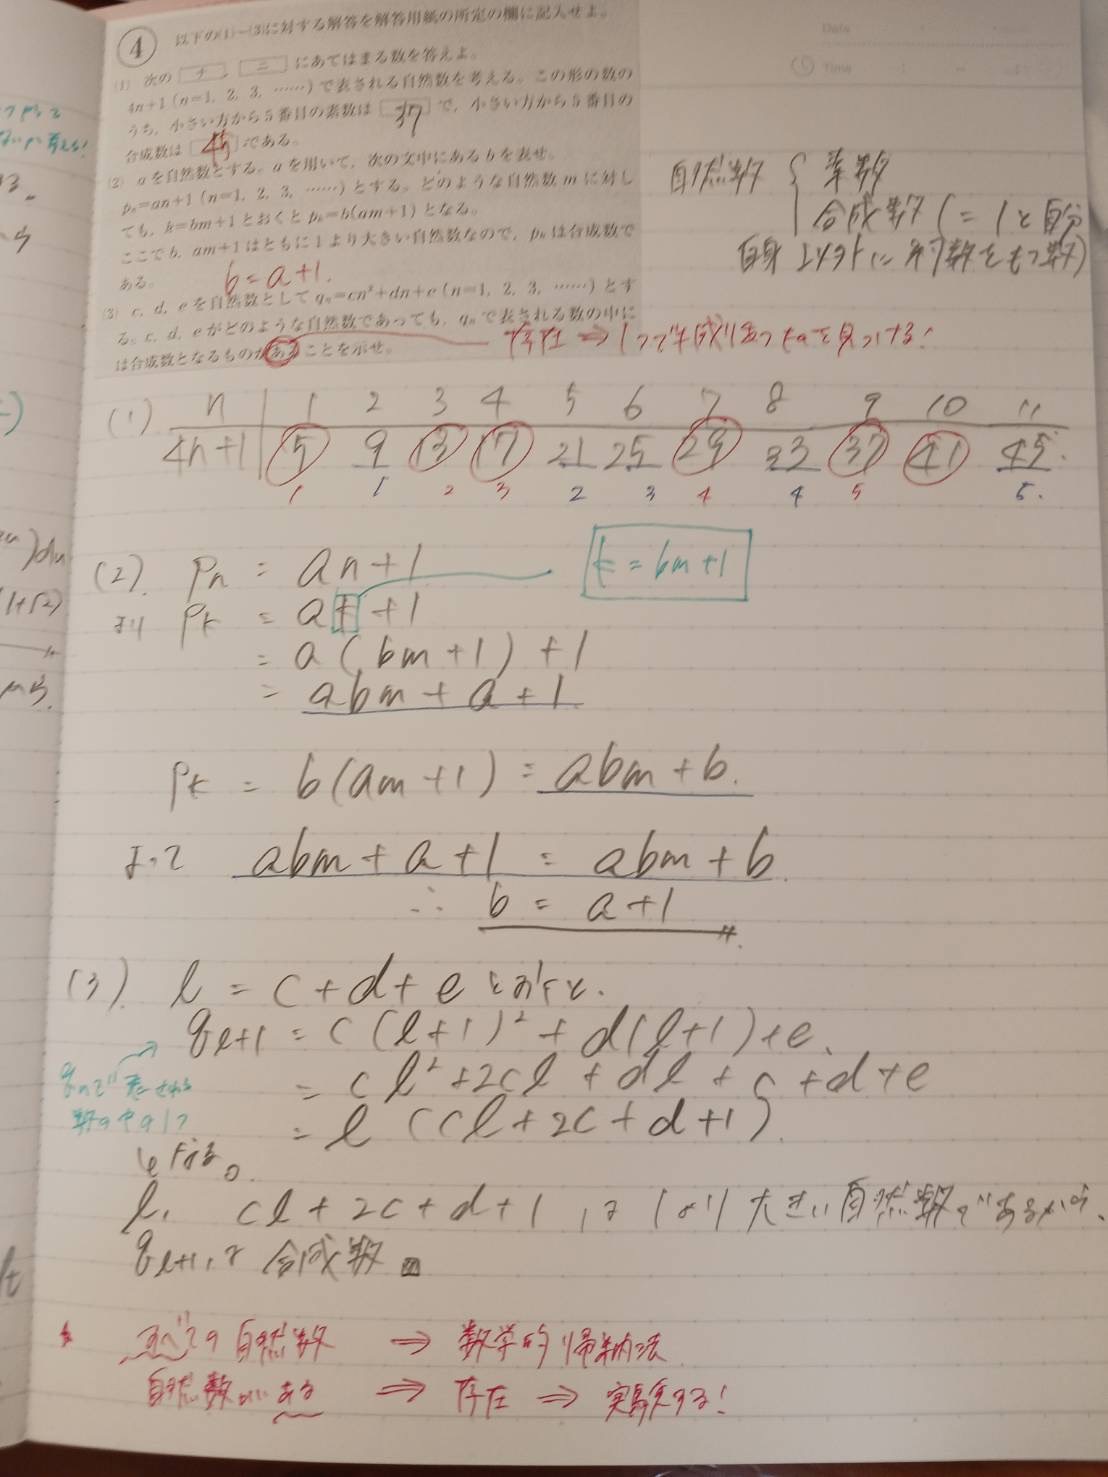 4 以下の(1)～(3)に対する解答を解答用紙の所定の欄に記入せよ。
(1) 次の ナ , ニ にあてはまる数を答えよ。
4n+1 (n=1, 2, 3, ……) で表される自然数を考える。この形の数の
うち、小さい方から5番目の素数は 37 で、小さい方から5番目の
合成数は 45 である。
(2) aを自然数とする。aを用いて、次の文中にあるbを表せ。
pn=an+1 (n=1, 2, 3, ……) とする。どのような自然数mに対し
ても、k=bm+1とおくとpk=b(am+1)となる。
ここでb, am+1はともに1より大きい自然数なので、pkは合成数で
ある。
b=a+1.
(3) c, d, eを自然数としてqn=cn²+dn+e (n=1, 2, 3, ……) とす
る。c, d, eがどのような自然数であっても、qnで表される数の中に
は合成数となるものがあることを示せ。
存在 ⇒ 1つで
自然数 { 素数
合成数 (= 1と自分
自身 以外に約数をもつ数)
Date
Time
(1) n 1 2 3 4 5 6 7 8 9 10 11
4n+1 5 9 13 17 21 25 29 33 37 41 45
1 1 2 3 2 3 4 4 5 5.
(2). pn = an+1
k = bm+1
より pk = ak+1
= a(bm+1)+1
= abm+a+1
pk = b(am+1) = abm+b.
よって abm+a+1 = abm+b
∴ b = a+1
(3). l = c+d+e とおくと.
ql+1 = c(l+1)²+d(l+1)+e.
= cl²+2cl+dl+c+d+e
qnで表される
数の中の1つ
= l(cl+2c+d+1)
となる。
l, cl+2c+d+1 は 1より大きい自然数であるから、
ql+1は 合成数
すべての自然数 ⇒ 数学的帰納法
自然数がある ⇒ 存在 ⇒ 実験する!